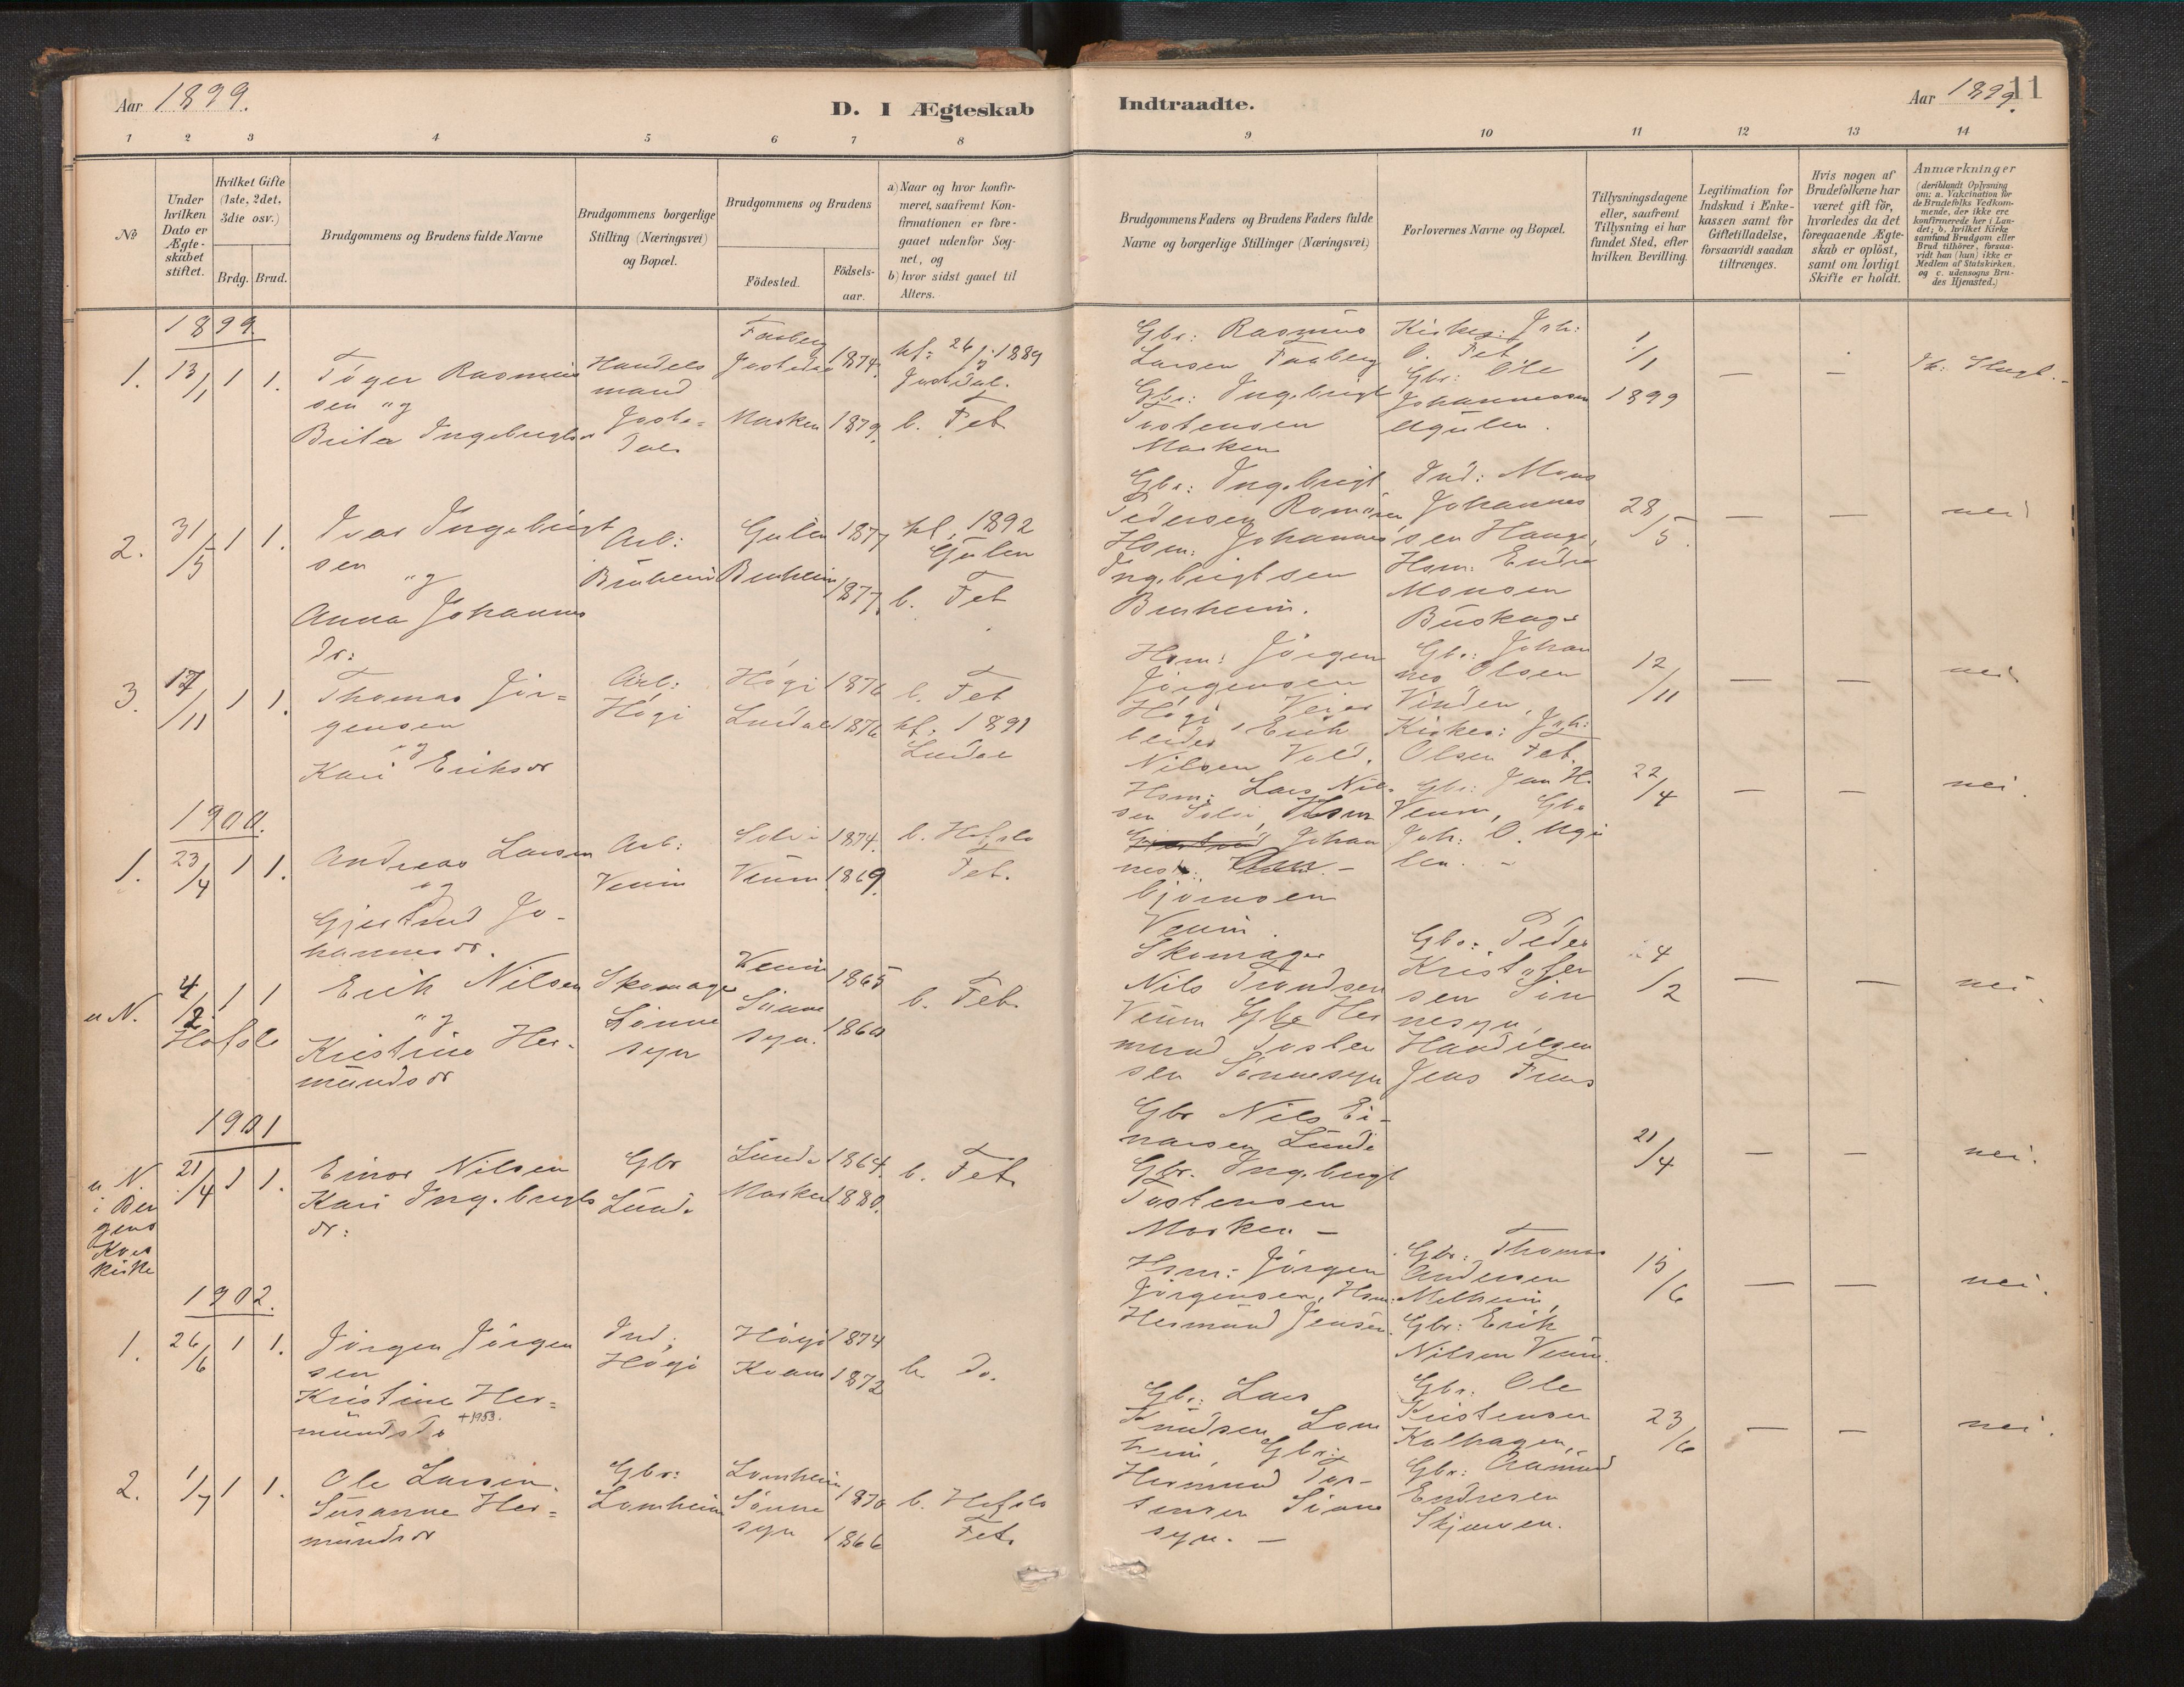 Aar 1899.
D. I Ægteskab
Indtraadte.
Aar 1899.
11
1 2 3 4 5 6 7 8
9 10 11 12 13 14
No
Under
hvilken
Dato er
Ægte-
skabet
stiftet.
Hvilket Gifte
(1ste, 2det,
3die osv.)
Brdg. Brud.
Brudgommens og Brudens fulde Navne
Brudgommens borgerlige
Stilling (Næringsvei)
og Bopæl.
Brudgommens og Brudens
Födested.
Födsels-
aar.
a) Naar og hvor konfir-
meret, saafremt Kon-
firmationen er fore-
gaaet udenfor Sog-
net, og
b) hvor sidst gaaet til
Alters.
Brudgommens Faders og Brudens Faders fulde
Navne og borgerlige Stillinger (Næringsvei)
Forlovernes Navne og Bopæl.
Tillysningsdagene
eller, saafremt
Tillysning ei har
fundet Sted, efter
hvilken Bevilling.
Legitimation for
Indskud i Enke-
kassen samt for
Giftetilladelse,
forsaavidt saadan
tiltrænges.
Hvis nogen af
Brudefolkene har
været gift för,
hvorledes da det
foregaaende Ægte-
skab er oplöst,
samt om lovligt
Skifte er holdt.
Anmærkninger
(deriblandt Oplysning
om: a. Vakcination for
de Brudefolks Vedkom-
mende, der ikke ere
konfirmerede her i Lan-
det; b. hvilket Kirke
samfund Brudgom eller
Brud tilhörer, forsaa-
vidt han (hun) ikke er
Medlem af Statskirken,
og c. udensogns Bru-
des Hjemsted.)
1899
1. 13/1 1 1.
Töger Rasmus
sen og
Brita Ingebrigtsdr
Handels
mand
Joste=
dal
Faaberg
Jostedal 1874.
Marken 1879.
kf: 26/5 1889
Jostdal.
b. Fet
Gbr: Rasmus
Larsen Faaberg
Gbr: Ingebrigt
Tostensen
Marken
Kirkes: Joh:
O. Fet
Gbr: Ole
Johannessen
Ugulen.
1/1
1899
— —
2. 31/5 1 1.
Ivar Ingebrigt
sen
og
Anna Johannes
dr:
Arb:
Buheim
Gulen 1877
Buheim 1877.
kf. 1892
Gulen
b. Fet
Gbr: Ingebrigt
Pedersen
Hsm: Johannes
Ingebrigtsen
Buheim.
Ind: Mons
Johannes
sen Hauge,
Hsm: Endre
Monsen
28/5.
— — nei
3. 17/11 1 1.
Thomas Jör=
gensen
og
Kari Eriksdr
Arb:
Högi
Högi 1876
Lærdal 1876
b. Fet
kf. 1891
Lærdal
Hsm: Jörgen
Jörgensen
Högi, Veiar
beider Erik
Nilsen Vold.
Gbr: Johan
nes Olsen
Vinden,
Kirkes: Joh:
Olsen Fet.
12/11
— — nei
1900.
1. 23/4 1 1.
Andreas Larsen
og
Gjertrud Jo-
hannesdr.
Arb:
Venim
1874.
Venim 1869.
b. Hafslo
Fet.
Hsm: Lars Nil-
sen Hsm
Johan
nes
björnsen
Venim.
Gbr: Jan H.
Venim, Gbr
Joh: O. Ugu
len. -
22/4
— — nei.
u N. 4/2 1 1
Hafslo
Erik Nilsen
og
Kristine Her-
mundsdr
Skomager
Sönne
syn
Venim 1865
Sönne
syn. 1860
b. Fet
Skomager
Nils Trondsen
Venim Gbr Her
mund Tosten
sen Sönnesyn
Gbr: Peder
Kristofer
sen Sön
nesyn,
Handelsm
Jens Fuus
4/2
— — nei.
1901
u N. 21/4 1 1.
i Ber
gens
Kors
kirke
Einar Nilsen
Kari Ingebrigts
dr:
Gbr
Lunde
Lunde 1864.
Marken 1880.
b. Fet
Gbr Nils Ei-
narsen Lunde
Gbr. Ingebrigt
Tostensen
Marken -
21/4
— — nei.
1902.
1. 26/6 1 1.
Jörgen Jörgen
sen
Kristine Her=
mundsdr +1953.
Ind:
Högi
Högi 1874
Kvam 1872
b. do.
Hsm: Jörgen
Jörgensen, Hsm:
Hermund Jensen.
Gbr: Thomas
Andersen
Melheim,
Gbr: Erik
Nilsen Venim.
15/6
— — nei.
2. 1/7 1 1.
Ole Larsen.
Susanne Her=
mundsdr
Gbr:
Lomheim
Lomheim 1870
Sönne
syn 1866
b. Hafslo
Fet.
Gbr: Lars
Knudsen Lom
heim, Gbr:
Hermund Tos-
tensen Sönne
syn. —
Gbr: Ole
Kristensen
Kalhagen,
Gbr: Aamund
Endresen
Skjerven.
23/6
— — nei.